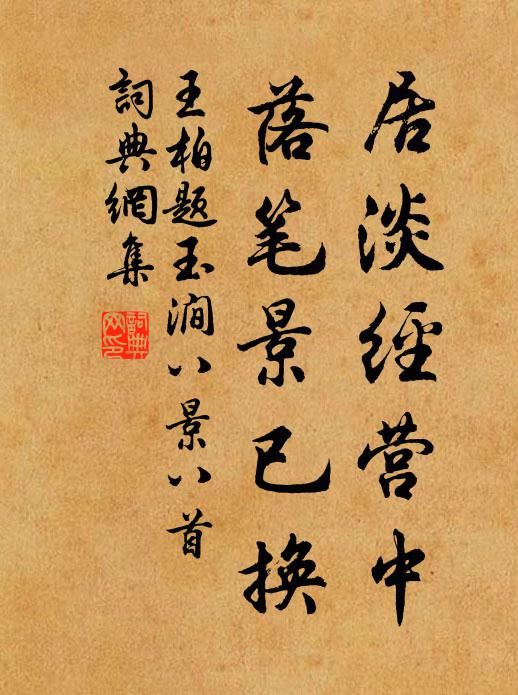 居淡經营中
落笔景已換
王柏题玉澗八景八首
詞典網集
詞典
网印